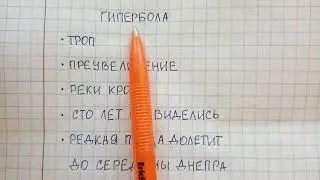 ГИПЕРБОЛА
· ТРОП
· ПРЕУВЕЛИЧЕНИЕ
· РЕКИ
· СТО ЛЕТ ВИДЕЛИСЬ
· РЕДКАЯ ДОЛЕТИТ
ДО СЕРЕДИНЫ ДНЕПРА